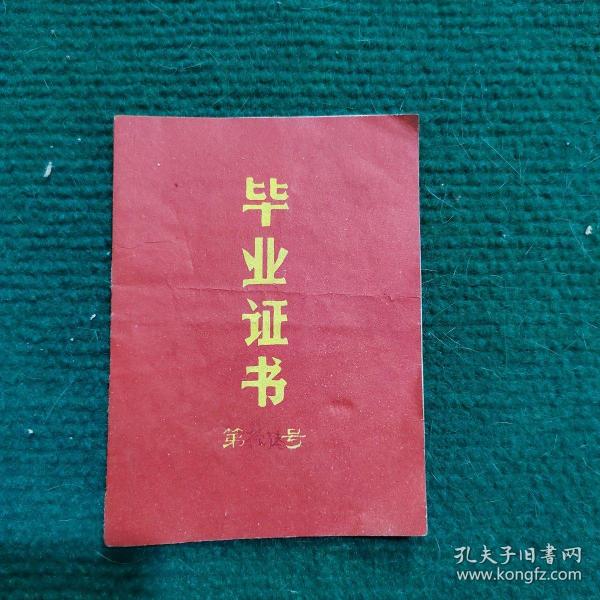 毕业证书
第号
孔夫子旧书网
www.kongfz.com